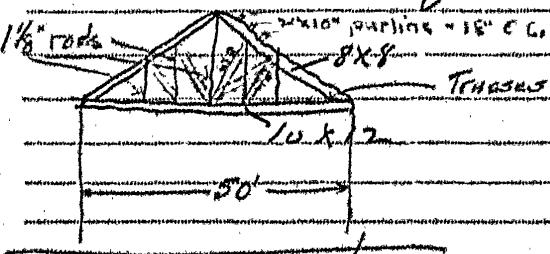 1⅛" rods
2"x10" purlins - 18" C C.
8x8
Trusses
10 x 12
50'